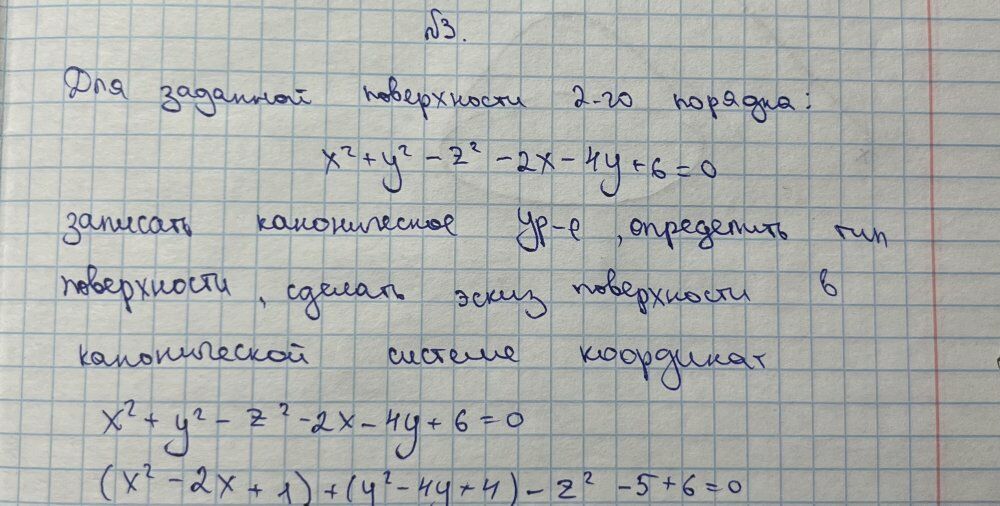 №3.
Для заданной поверхности 2-го порядка:
x² + y² - z² - 2x - 4y + 6 = 0
записать каноническое ур-е, определить тип
поверхности, сделать эскиз поверхности в
канонической системе координат
x² + y² - z² - 2x - 4y + 6 = 0
(x² - 2x + 1) + (y² - 4y + 4) - z² - 5 + 6 = 0